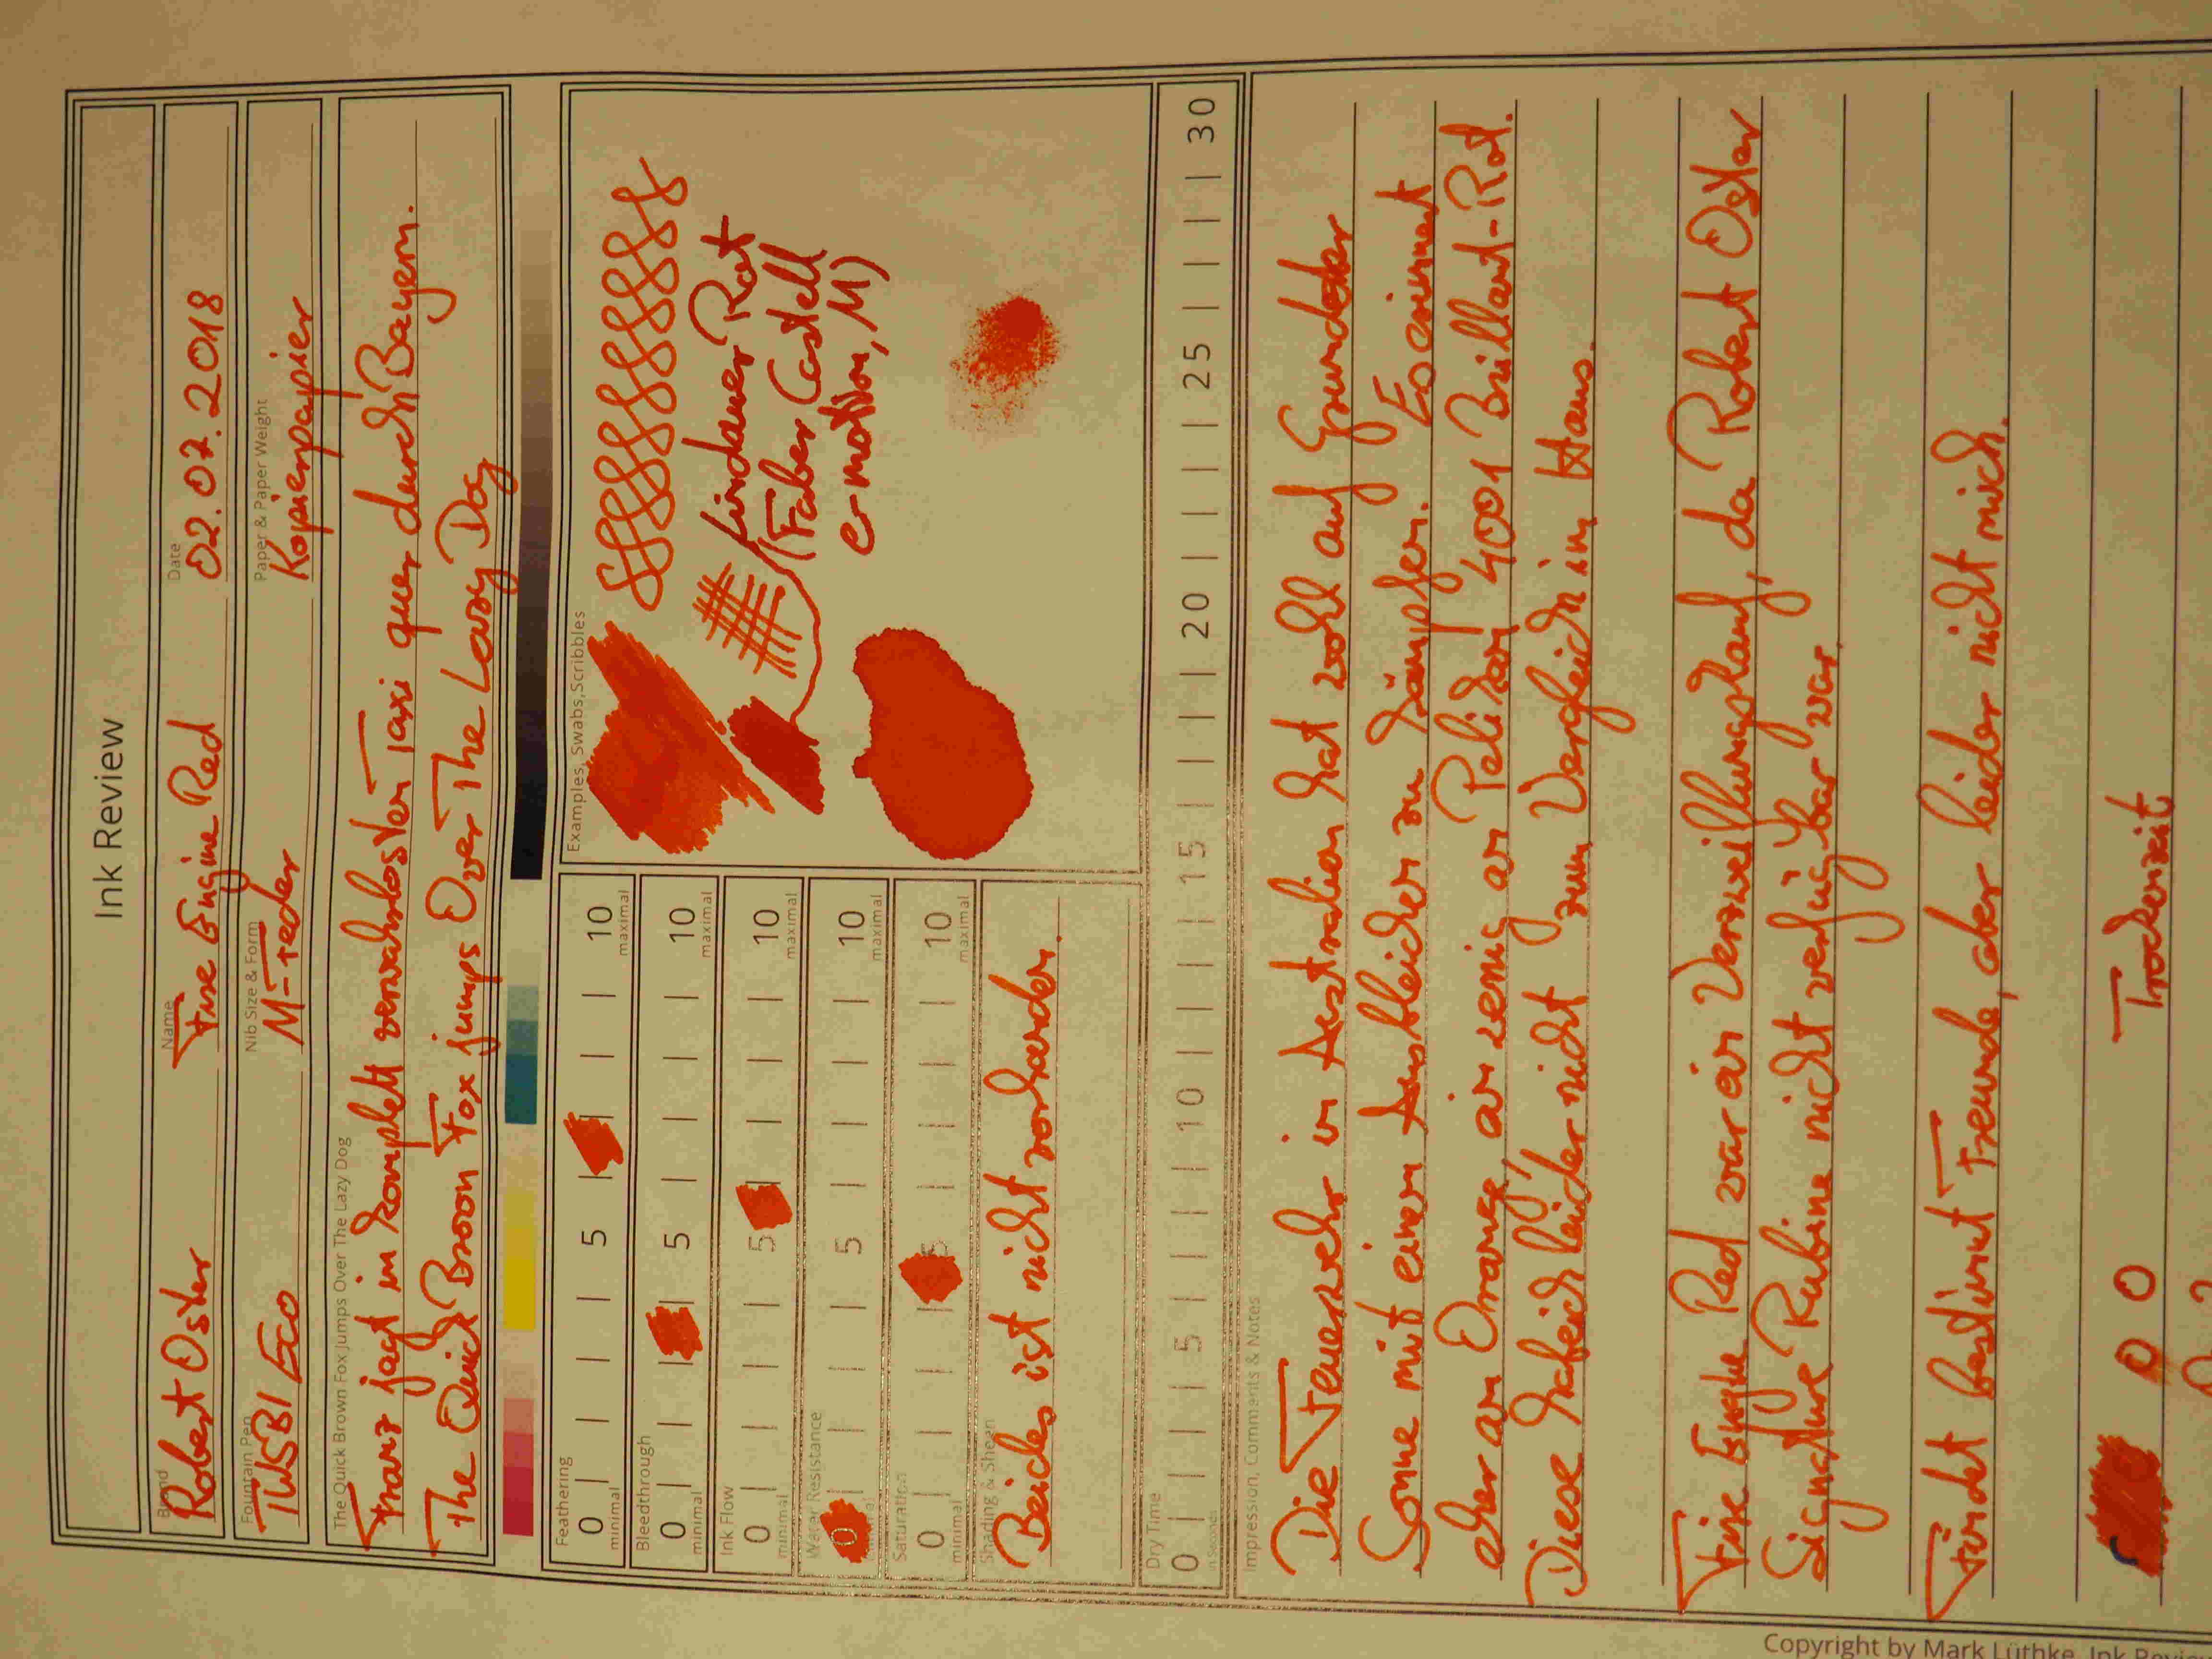 Ink Review
Brand Robert Oster Name Fire Engine Red Date 02.07.2018
Fountain Pen TWSBI Eco Nib Size & Form M-Feder Paper & Paper Weight Kopierpapier
The Quick Brown Fox Jumps Over The Lazy Dog
Franz jagt im komplett verwahrlosten Taxi quer durch Bayern.
The Quick Brown Fox jumps Over The Lazy Dog
Feathering
0 5 10
minimal maximal
Bleedthrough
0 5 10
minimal maximal
Ink Flow
0 5 10
minimal maximal
Water Resistance
0 5 10
maximal
Saturation
0 5 10
minimal maximal
Shading & Sheen
Beides ist nicht vorhanden.
Examples, Swabs, Scribbles
Lindauer Rot
(Faber Castell
emotion, M)
Dry Time
0 5 10 15 20 25 30
in Seconds
Impression, Comments & Notes
Die Feuerwehr in Australien hat wohl auf Grund der
Sonne mit einem Ausbleichen zu kämpfen. Es erinnert
eher an Orange, ein wenig an Pelikan 4001 Brillant-Rot.
Diese habe ich leider nicht zum Vergleich im Haus.
Fire Engine Red war ein Verzweiflungskauf, da Robert Oster
Signature Rubine nicht verfügbar war.
Findet bestimmt Freunde, aber leider nicht mich.
Trockenzeit
Copyright by Mark Lüthke, Ink